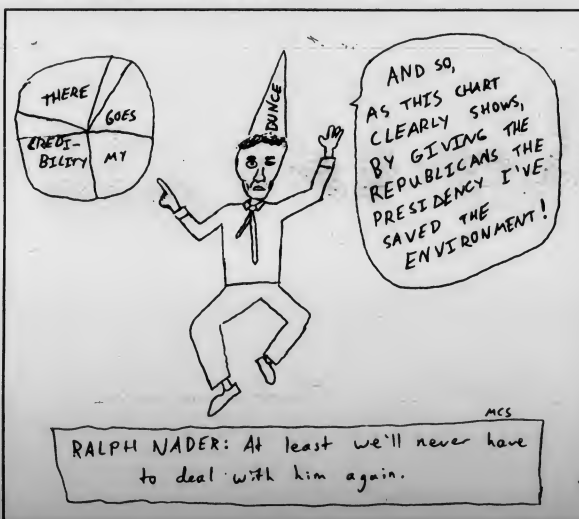 THERE
GOES
MY
CREDI-
BILITY
DUNCE
AND SO,
AS THIS CHART
CLEARLY SHOWS,
BY GIVING THE
REPUBLICANS THE
PRESIDENCY I'VE
SAVED THE
ENVIRONMENT!
MCS
RALPH NADER: At least we'll never have
to deal with him again.